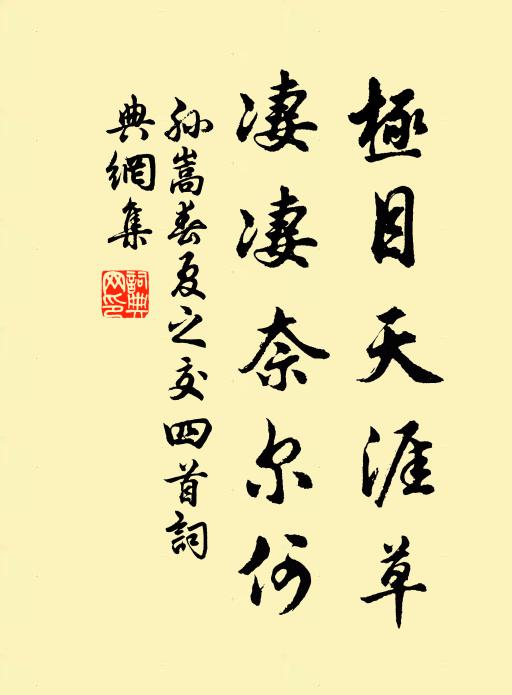 極目天涯草
凄凄奈尔何
孙嵩春夏之交四首詞
典網集
詞典
网印